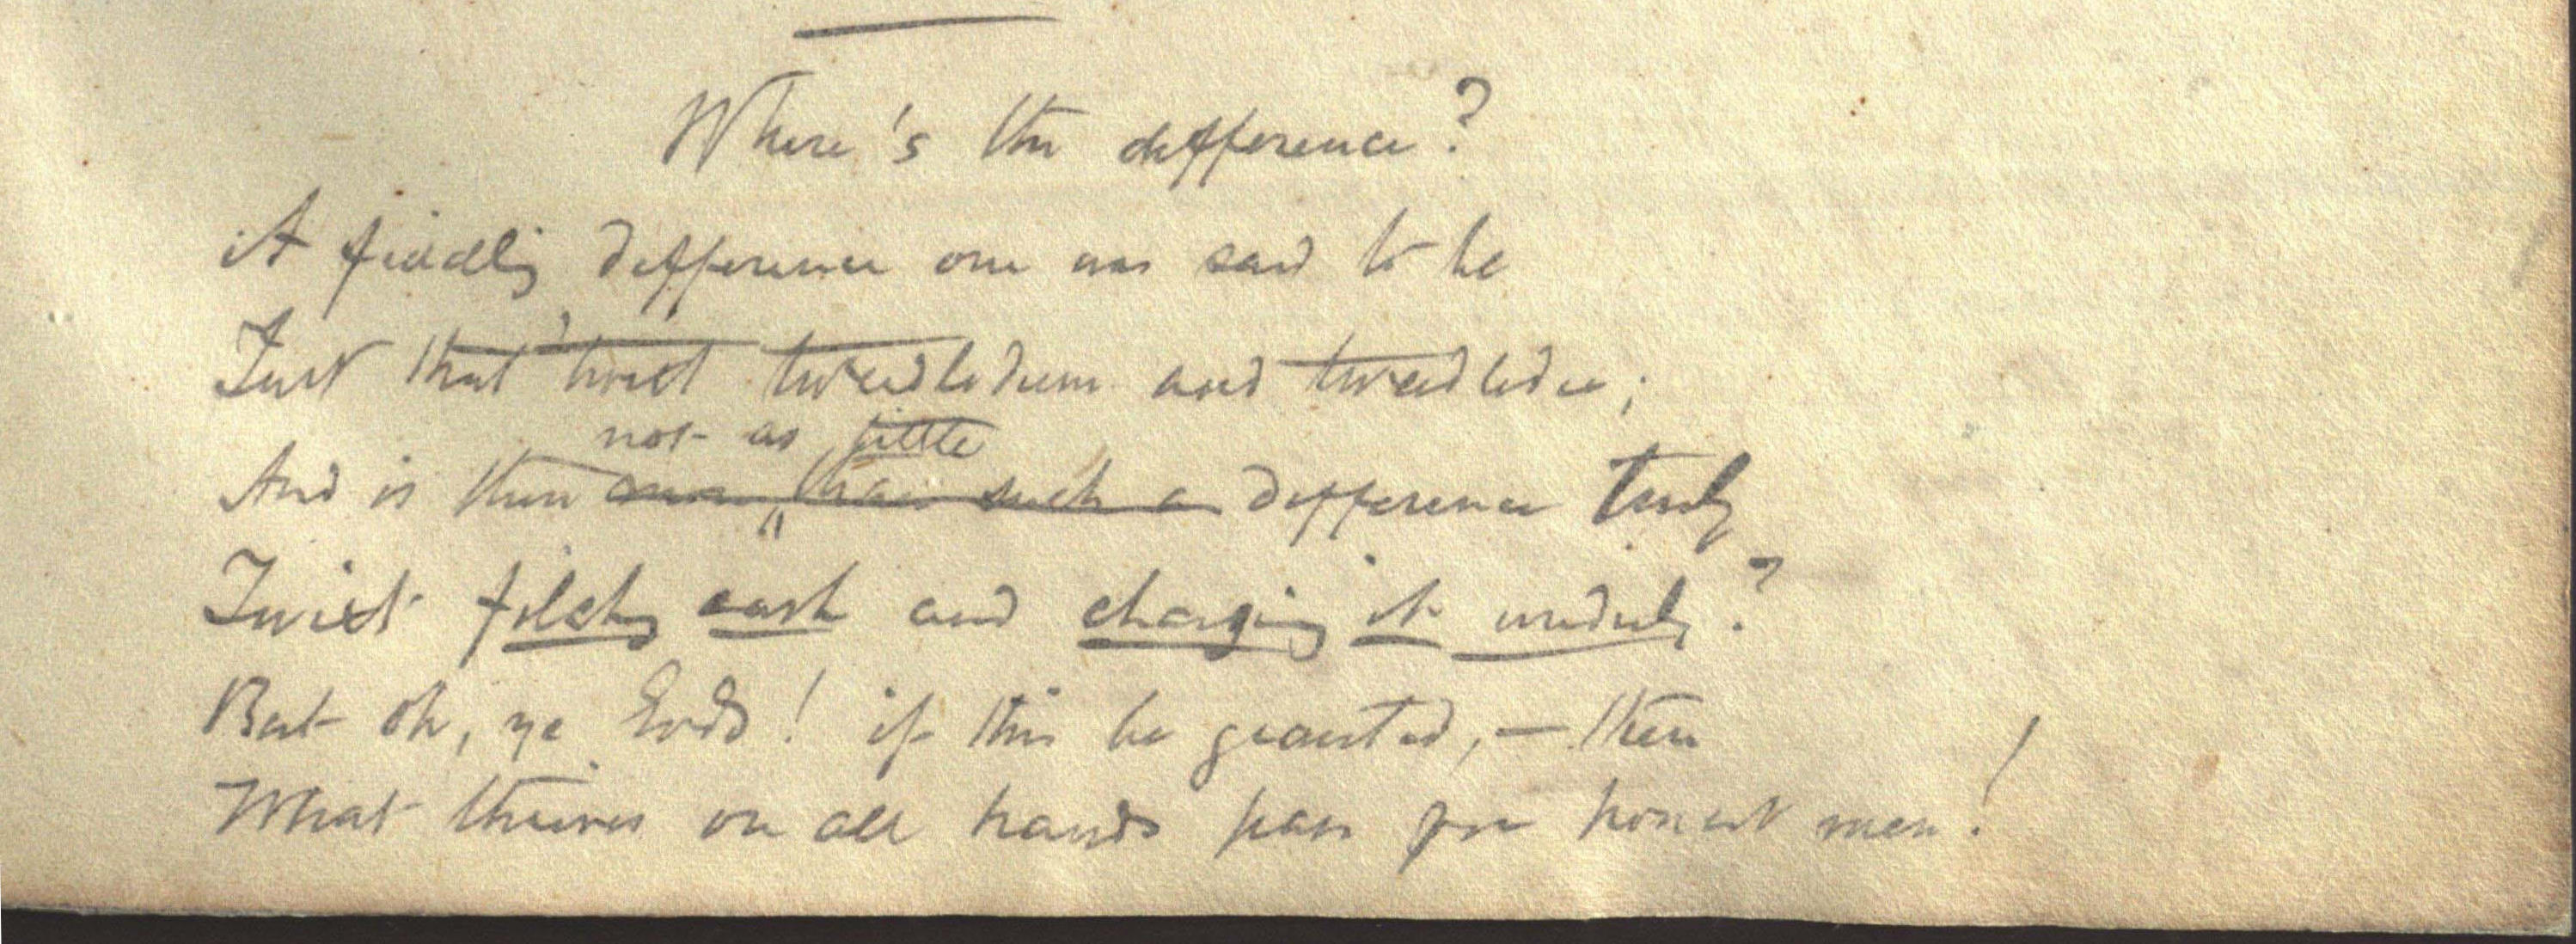 Where's the difference?
A fiddling difference one was said to be
Just that 'twixt tweedledum and tweedledee;
not as little
And is there such a difference truly
Twixt filching cash and charging it unduly?
But oh, ye Gods! if this be granted, — then
What thieves on all hands pass for honest men!